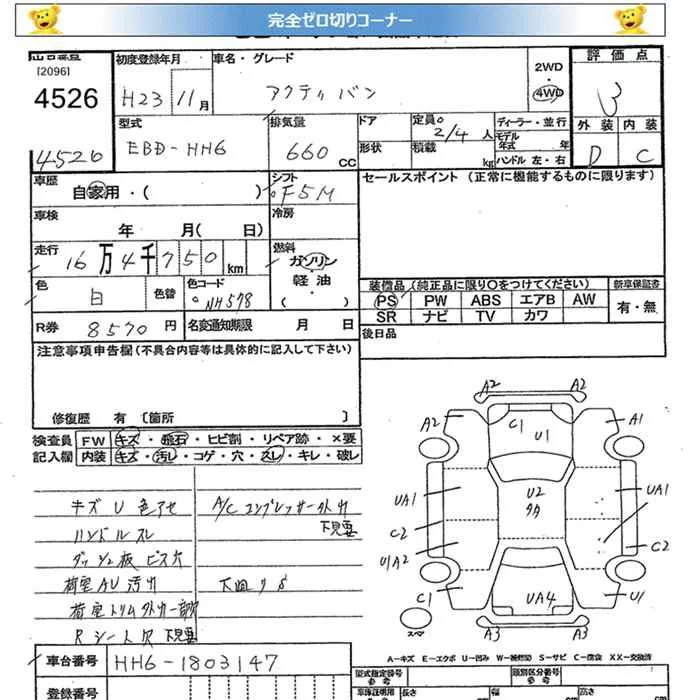 完全ゼロ切りコーナー
[2096]
4526
4526
初度登録年月
H23 11月
車名・グレード
アクティバン
2WD
・
4WD
評価点
3
外装 内装
D C
型式
EBD-HH6
排気量
660 CC
ドア
形状
定員 2/4 人
積載 kg
ディーラー・並行
モデル年式 年
ハンドル 左・右
車歴
自家用・( )
シフト
F5M
セールスポイント (正常に機能するものに限ります)
車検
年 月( 日)
冷房
走行
16万4千750km
燃料
ガソリン
軽油
( )
色
白
色替
色コード
NH578
装備品(純正品に限り○をつけてください)
新車保証書
PS PW ABS エアB AW
SR ナビ TV カワ
有・無
R券 8570 円
名変通知期限 月 日
後日品
注意事項申告欄(不具合内容等は具体的に記入して下さい)
修復歴 有 〔箇所 〕
検査員記入欄
FW キズ・飛石・ヒビ割・リペア跡・×要
内装 キズ・汚レ・コゲ・穴・スレ・キレ・破レ
キズ U 色アセ
A/C コンプレッサー外レ
下見要
ハンドルスレ
ダッシュ板 ビス穴
荷室AU汚レ
下廻りS
荷室トリム外レ一部欠
Rシート欠 下見要
A2 A2
A2 C1 U1 A1
UA1 U2 UA1
C2 C2
U1A2
C1 UA4 U1
スペア
A3 A3
A-キズ E-エクボ U-凹み W-補修跡 S-サビ C-腐食 XX-交換済
車台番号 HH6-1803147
登録番号
型式指定番号
参考
類別区分番号
参考
長さ
幅
高さ